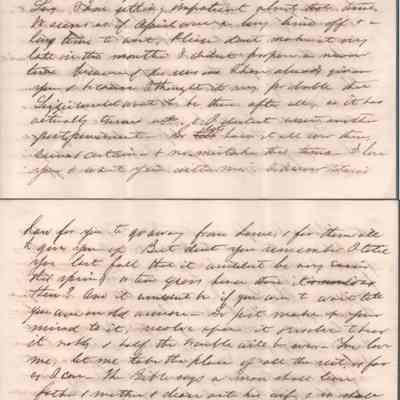 day. I am getting impatient about that time.
It seems as if April were a long time off & a
long time to wait. Please don't make it very
late in the month. I didn't propose a nearer
time because of the reasons I have already given
you & because I thought it very probable that
Lizzie would want to be there after all, as it has
actually turned out, & I didn't want another
postponement. So let's have it all sure then,
certain & no mistake this time. I love
you & want you with me,
hard for you to go away from home & for them all
to give you up. But don't you remember I told
you last fall that it wouldn't be any easier
this spring when Green
then? And it wouldn't be if you were to wait till
you are an old woman. So just make up your
mind to it, resolve upon it resolve to bear
it nobly & half the trouble will be over. You love
me, let me take the place of all the rest, as far
as I can. The Bible says a man shall leave
father & mother & cleave unto his wife, & so shall